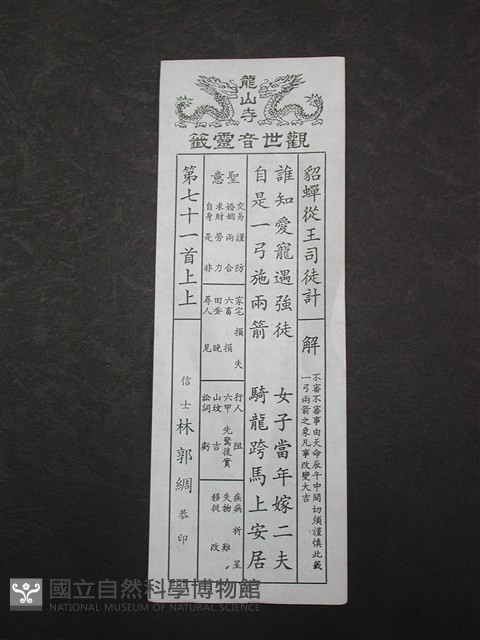 龍山寺
觀世音靈籤
貂蟬從王司徒計
解
不審不審事由天命辰午中間切須謹慎此籤
一弓兩箭之象凡事改變大吉
誰知愛寵遇強徒 女子當年嫁二夫
自是一弓施兩箭 騎龍跨馬上安居
聖意
交易 謹防
婚姻 兩合
求財 勞力
自身 是非
家宅 損失
六畜 損
田蚕 晚
尋人 見
行人 阻
六甲 先驚後實
山坟 吉
訟詞 虧
疾病 祈星
失物 難
移徙 改
第七十一首上上
信士林郭綢恭印
國立自然科學博物館
NATIONAL MUSEUM OF NATURAL SCIENCE